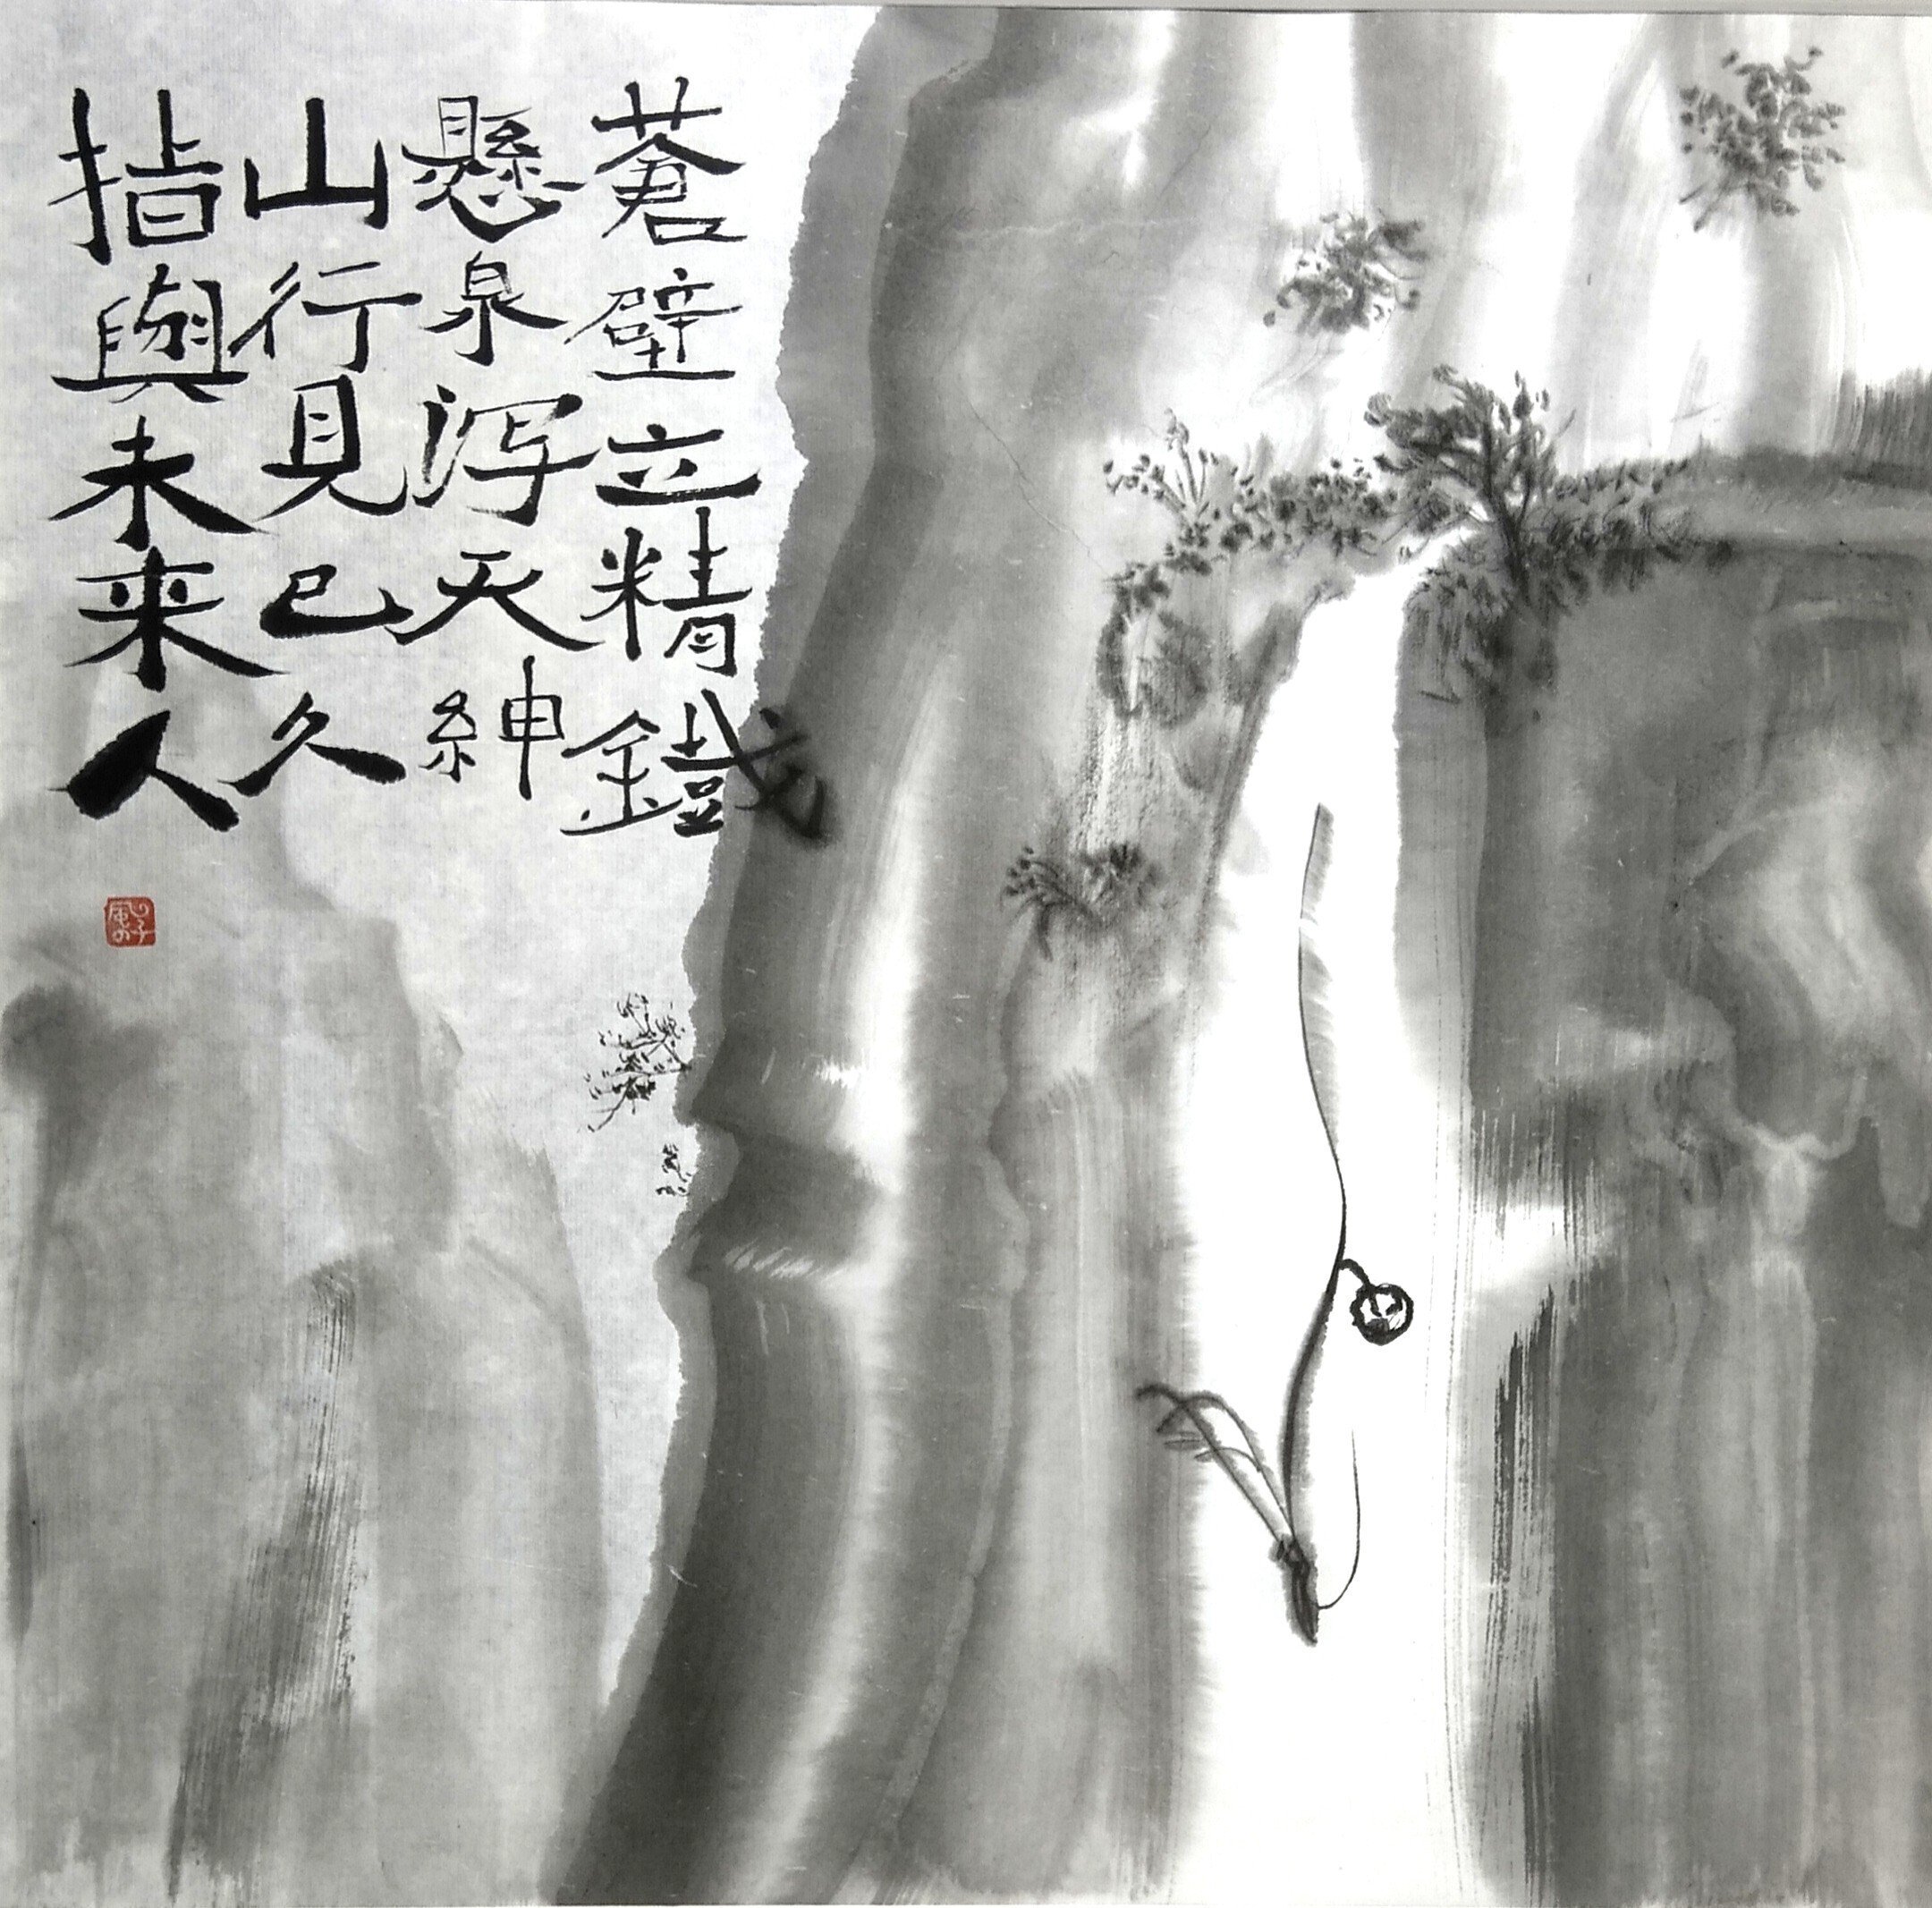 蒼壁立精鐵
懸泉瀉天紳
山行見已久
指與未來人